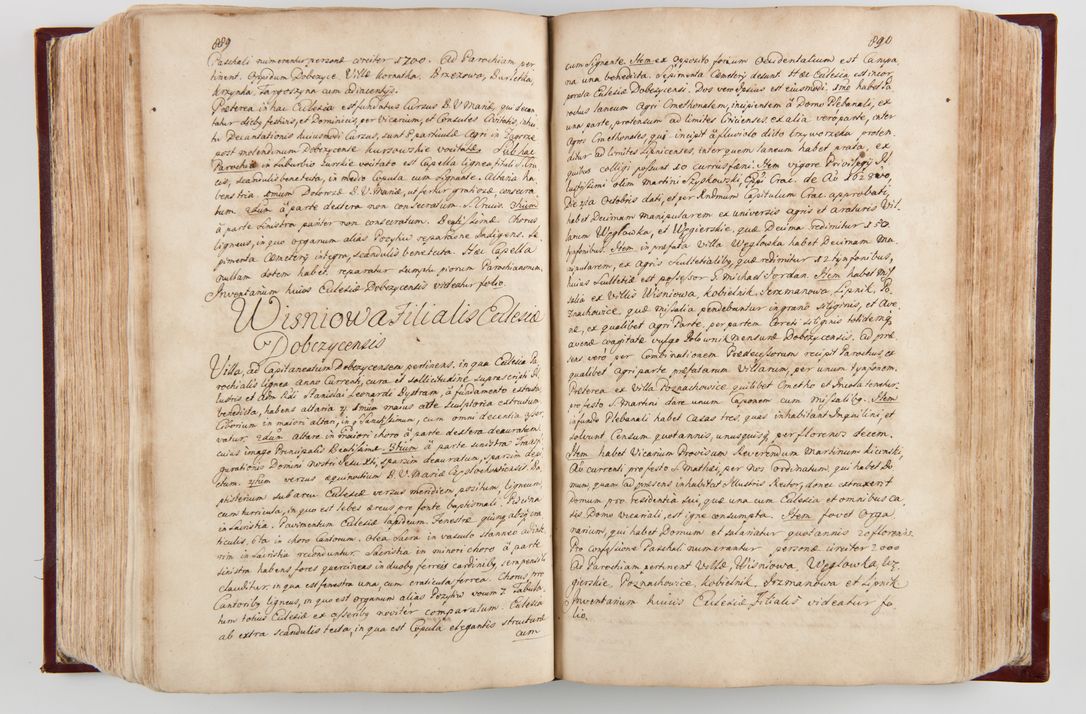 889
Paschali numerantur personæ circiter 1700. Ad Parochiam per
tinent. Oppidum Dobczyce. Villæ Kornatka, Brzezowa, Burletka,
Krzynda, Targoszyna cum adiacentijs.
Præterea in hac Ecclesia est fundatus Cursus B. V. Mariæ, qui decan
tatur diebq festivis, et Dominicis, per Vicarium, et Consules Civitatis, intui
tu Decantationis huiusmodi Cursus, sunt particulæ Agri in
post molendinum Dobczycense Kurzowskie vocitatæ. Sub hac
Parochia in suburbio vocitato est Capella lignea, tituli S. Cru
cis, scandulis benetecta, in medio Copula cum signante. Altaria ha
bens tria Imum Dolorosæ B. V. Mariæ, ut fertur gratiosæ consecra
tum. 2dum à parte dextera non consecratum S. Crucis. 3tium
à parte sinistra pariter non consecratum. Chorus
ligneus, in quo organum alias Pozytyw reparatione Indigens. Se
pimenta Cæmeterij integra, scandulis benetecta. Hæc Capella
nullam dotem habet, reparatur sumptu piorum Parochianorum.
Inventarium huius Ecclesiæ Dobczycensis videatur folio.
Wisniowa Filialis Ecclesiæ
Dobczycensis
Villa, ad Capitaneatum Dobczycensem pertinens, in qua Ecclesia Pa
rochialis lignea Anno Currenti, cura et sollicitudine suprascripti Il
lustris et Adm Rdi Stanislai Leonardi Bystram, à fundamento extructa
benedicta, habens altaria 4. Imum maius arte sculptoria extructum
Ciborium in maiori altari, in quo Sanctissimum, cum omni decentia asser
vatur. 2dum altare in maiori choro à parte dextera deauratum
cuius imago Principalis Beatissimæ. 3tium à parte sinistra Transfi
gurationis Domini Nostri Jesu Xti, sparsim deauratum, sparsim depi
ctum. 4tum versus B. V. Mariæ Częstochoviensis. Ba
ptisterium sub arcu Ecclesiæ versus meridiem positum, ligneum,
cum turricula, in quo est lebes æreus pro fonte baptismali. Piscina
in sacristia. Pavimentum Ecclesiæ lapideum. Fenestræ absq cra
ticulis, 6ta in choro Cantorum. Olea Sacra in vasculo stanneo
rim in sacristia reconduntur. Sacristia in minori choro à parte
sinistra habens fores quercineas in duobq ferreis cardinibq, sera pensili
clauditur, in qua est fenestra una, cum craticula ferrea. Chorus pro
Cantoribq ligneus, in quo est organum alias Pozytyw vocum 7. Tabula
tum totius Ecclesiæ ex asseribq noviter comparatum. Ecclesia
ab extra scandulis tecta, in qua est Copula elegantis structuræ
cum
890
cum signante. Item ex opposito forium Occidentalium est Campa
na una benedicta. Sepimenta Cæmeterij desunt. Hæc Ecclesia est incor
porata Ecclesiæ Dobczycensi. Dos vero ipsius est eiusmodi. Imo habet Pa
rochus laneum Agri Cmethonalem, incipientem à Domo Plebanali, ex
una parte, protensum ad limites ex alia vero parte, inter
Agros Cmethonales, qui incipit à fluvio dicto Krzyworzeka proten
ditur ad limites Lipnicenses, inter quem laneum habet prata, ex
quibus colligi possunt 10 currus fæni. Item vigore Privilegij Il
lustrissimi olim Martini Szyskowski, Eppi Crac. de Ao 1628vo,
Die 21a Octobris dati, et per Rndmum Capitulum Crac. approbati,
habet Decimam manipularem ex universis agris et araturis Vil
larum Węglowka, et Węgierskie, quæ Decima redimitur 150.
tynfonibus. Item in præfata Villa Węglowka habet Decimam Ma
nipularem, ex Agris Scultetialibq, quæ redimitur 12 tynfonibus,
huius Scultetiæ est possessor G. Michael Jordan. Item habet Mis
salia ex Villis Wisniowa, Kobielnik, Jerzmanowa, Lipnik, Po
znachowice, quæ missalia pendebantur in grano siliginis, et Ave
næ, ex qualibet agri parte, per partem Coreti siliginis totidemq
avenæ coagitatæ vulgo Polownik mensuræ Dobczycensis. Ad præ
sens vero per Combinationem Prædecessorum recipit Parochus, ex
qualibet Agri parte, præfatarum Villarum, per unum tynfonem.
Præterea ex Villa Poznachowice quilibet Cmetho et Incola tenetur
pro festo S. Martini dare unum Caponem cum missalibq. Item
in fundo Plebanali habet casas tres, quas inhabitant Inquilini, et
solvunt Censum quotannis, unusquisq per florenos decem.
Item habet Vicarium Provisum Reverendum Martinum Kicinski,
Ao currenti pro festo S. Mathæi, per Nos ordinatum, qui habet Do
mum, quam ad præsens inhabitat Illustris Rector, donec extruxerit
domum pro residentia sui, quæ una cum Ecclesia et omnibus ca
sis Domo vicariali, est igne consumpta. Item fovet Orga
narium, qui habet Domum et salariatur quotannis 20 florenis.
Pro Confessione Paschali numerantur personæ circiter 2000
Ad Parochiam pertinent Villæ, Wisniowa, Węglowka, Wę
gierskie, Poznachowice, Kobielnik, Jrzmanowa et Lipnik.
Inventarium huius Ecclesiæ Filialis videatur fo
lio.